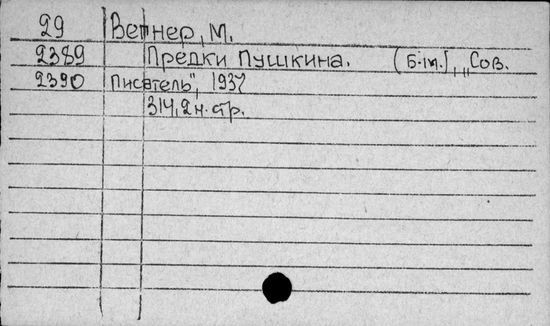 29 Вегнер, М.
2389 Предки Пушкина. [Б.m.], „Сов.
2390 Писатель", 1937
314,2н.стр.